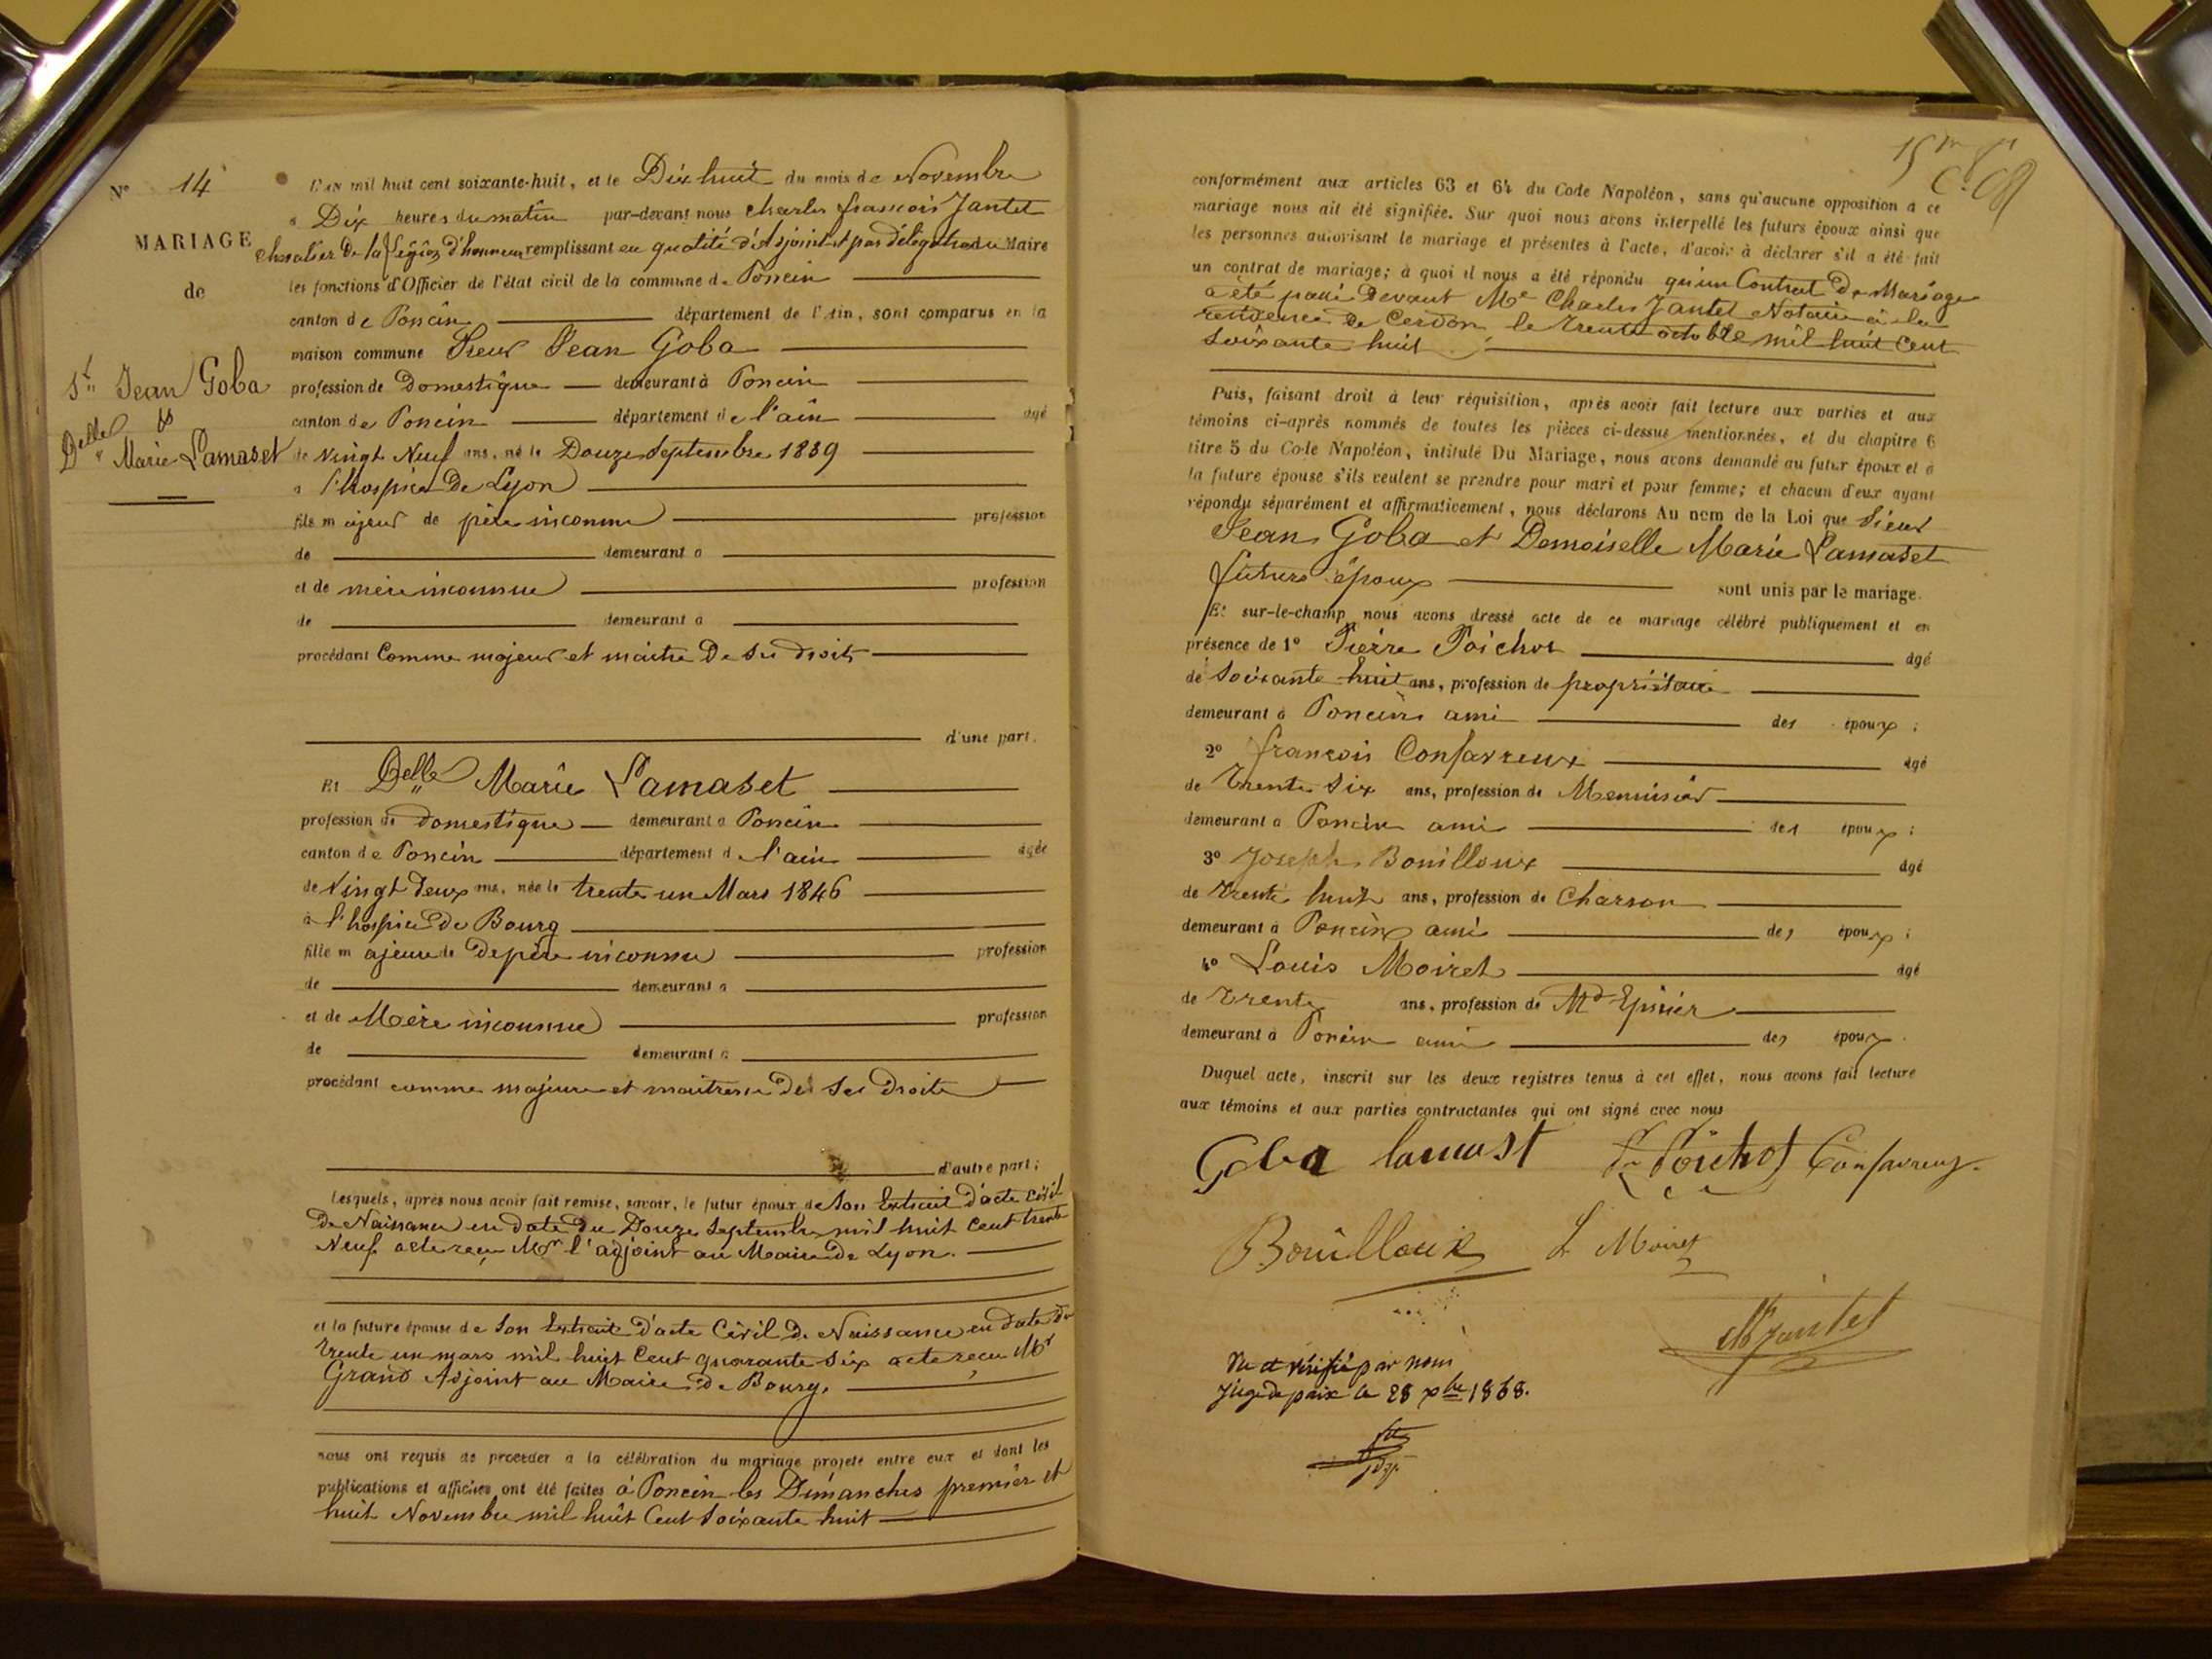 N° 14
MARIAGE
de
Sr Jean Goba
&
Delle Marie Lamaset
L'an mil huit cent soixante-huit, et le Dix huit du mois de Novembre
à Dix heures du matin par-devant nous Charles françois Jantet
Chevalier de la Légion d'honneur remplissant en qualité d'Adjoint et par délégation du Maire
les fonctions d'Officier de l'état civil de la commune de Poncin
canton de Poncin département de l'Ain, sont comparus en la
maison commune Sieur Jean Goba
profession de Domestique demeurant à Poncin
canton de Poncin département de l'ain âgé
de vingt Neuf ans, né le Douze Septembre 1839
à l'hospice de Lyon
fils majeur de père inconnu profession
de demeurant à
et de mère inconnue profession
de demeurant à
procédant Comme majeur et maître de ses droits
d'une part.
Et Delle Marie Lamaset
profession de domestique demeurant à Poncin
canton de Poncin département de l'ain âgée
de Vingt deux ans, née le trente un Mars 1846
à l'hospice de Bourg
fille majeure de De père inconnu profession
de demeurant à
et de Mère inconnue profession
de demeurant à
procédant comme majeure et maitresse de ses droits
d'autre part;
Lesquels, après nous avoir fait remise, savoir, le futur époux de son Extrait d'acte civil
de Naissance en date du Douze Septembre mil huit cent trente
Neuf acte reçu Mr l'adjoint au Maire de Lyon.
et la future épouse de son Extrait d'acte Civil de Naissance en date du
trente un mars mil huit Cent quarante six acte reçu Mr
Grand Adjoint au Maire de Bourg.
nous ont requis de procéder à la célébration du mariage projeté entre eux et dont les
publications et affiches ont été faites à Poncin les Dimanches premier et
huit Novembre mil huit Cent soixante huit
conformément aux articles 63 et 64 du Code Napoléon, sans qu'aucune opposition à ce
mariage nous ait été signifiée. Sur quoi nous avons interpellé les futurs époux ainsi que
les personnes autorisant le mariage et présentes à l'acte, d'avoir à déclarer s'il a été fait
un contrat de mariage; à quoi il nous a été répondu qu'un Contrat de Mariage
a été passé devant Me Charles Jantet Notaire à la
residence de Cerdon le trente octobre mil huit cent
soixante huit
Puis, faisant droit à leur réquisition, après avoir fait lecture aux parties et aux
témoins ci-après nommés de toutes les pièces ci-dessus mentionnées, et du chapitre 6
titre 5 du Code Napoléon, intitulé Du Mariage, nous avons demandé au futur époux et à
la future épouse s'ils veulent se prendre pour mari et pour femme; et chacun d'eux ayant
répondu séparément et affirmativement, nous déclarons Au nom de la Loi que Sieur
Jean Goba et Demoiselle Marie Lamaset
futurs époux sont unis par le mariage.
Et sur-le-champ nous avons dressé acte de ce mariage célébré publiquement et en
présence de 1° Pierre Poichot âgé
de soixante huit ans, profession de propriétaire
demeurant à Poncin ami des époux;
2° françois Confavreux âgé
de trente six ans, profession de Menuisier
demeurant à Poncin ami des époux;
3° Joseph Bouilloux âgé
de trente huit ans, profession de Charron
demeurant à Poncin ami des époux;
4° Louis Moiret âgé
de trente ans, profession de Md Epicier
demeurant à Poncin ami des époux.
Duquel acte, inscrit sur les deux registres tenus à cet effet, nous avons fait lecture
aux témoins et aux parties contractantes qui ont signé avec nous
Goba lamast Poichot Confavreux
Bouilloux L Moiret
Ch Jantet
Vu et vérifié par nous
Juge de paix le 28 xbre 1868.